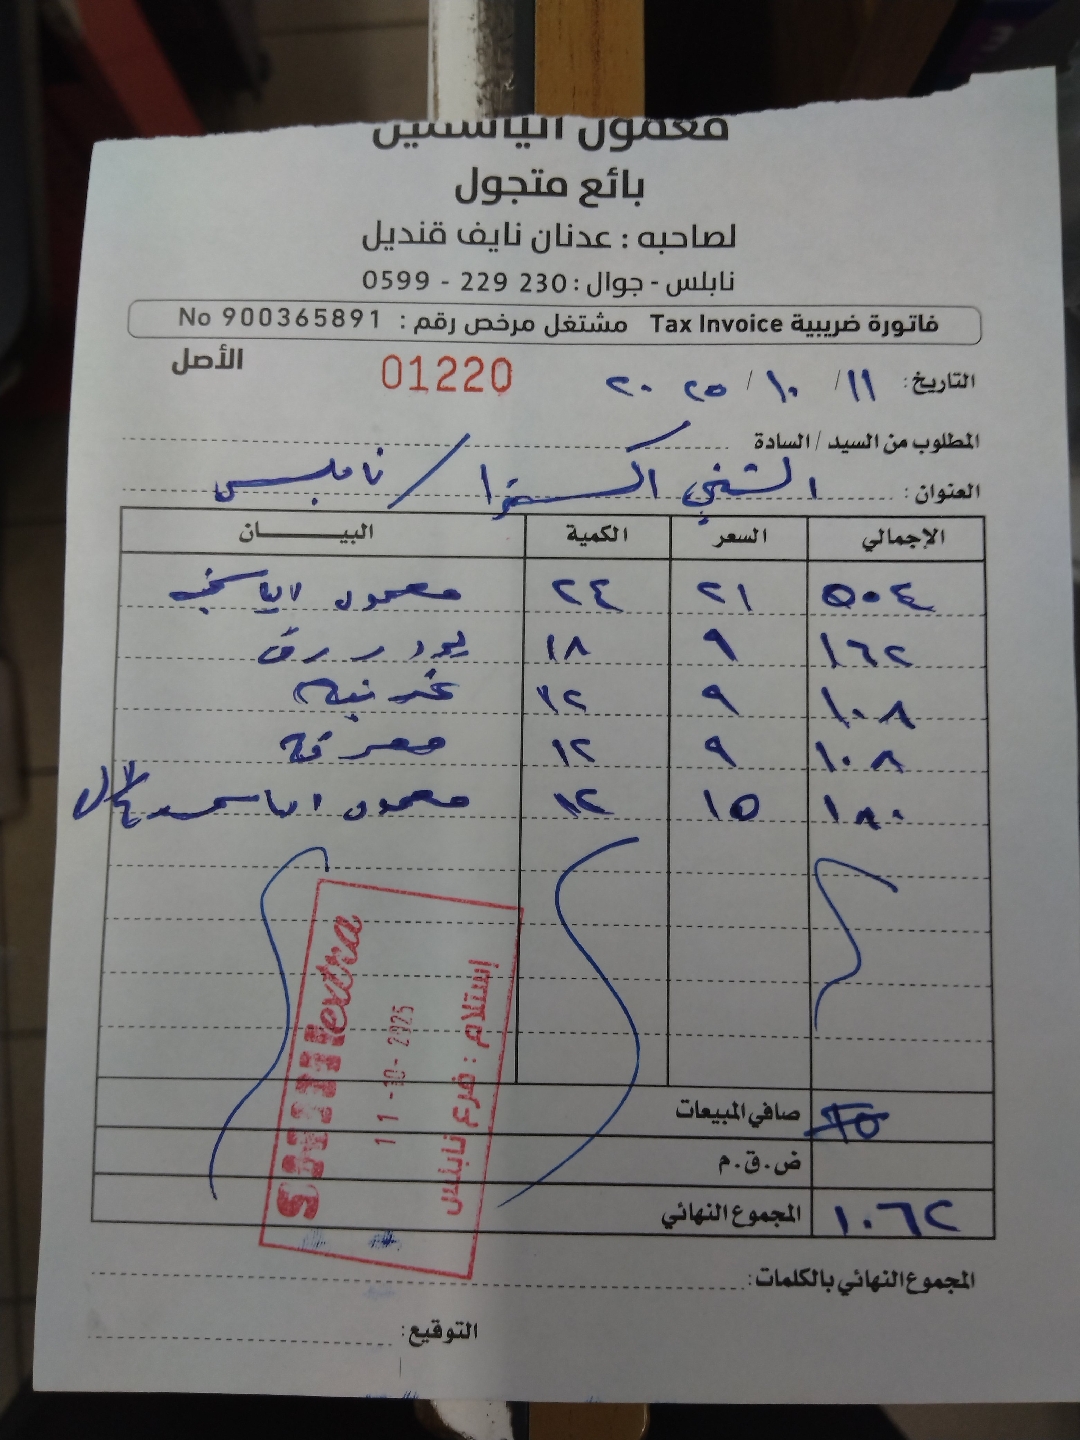 معمول الياسمين
بائع متجول
لصاحبه : عدنان نايف قنديل
نابلس - جوال : 230 229 - 0599
فاتورة ضريبية Tax Invoice مشتغل مرخص رقم : No 900365891
الأصل
01220
التاريخ: ١١ / ١٠ / ٢٠٢٥
المطلوب من السيد / السادة
العنوان : الشني اكسترا / نابلس
الإجمالي السعر الكمية البيـــــان
٥٠٤ ٢١ ٢٤ معمول الياسمين
١٦٢ ٩ ١٨
١٠٨ ٩ ١٢
١٠٨ ٩ ١٢
١٨٠ ١٥ ١٢ معمول الياسمين
extra
11-10-2025
إستلام : فرع نابلس
صافي المبيعات
ض.ق.م
المجموع النهائي ١٠٦٢
المجموع النهائي بالكلمات:
التوقيع: